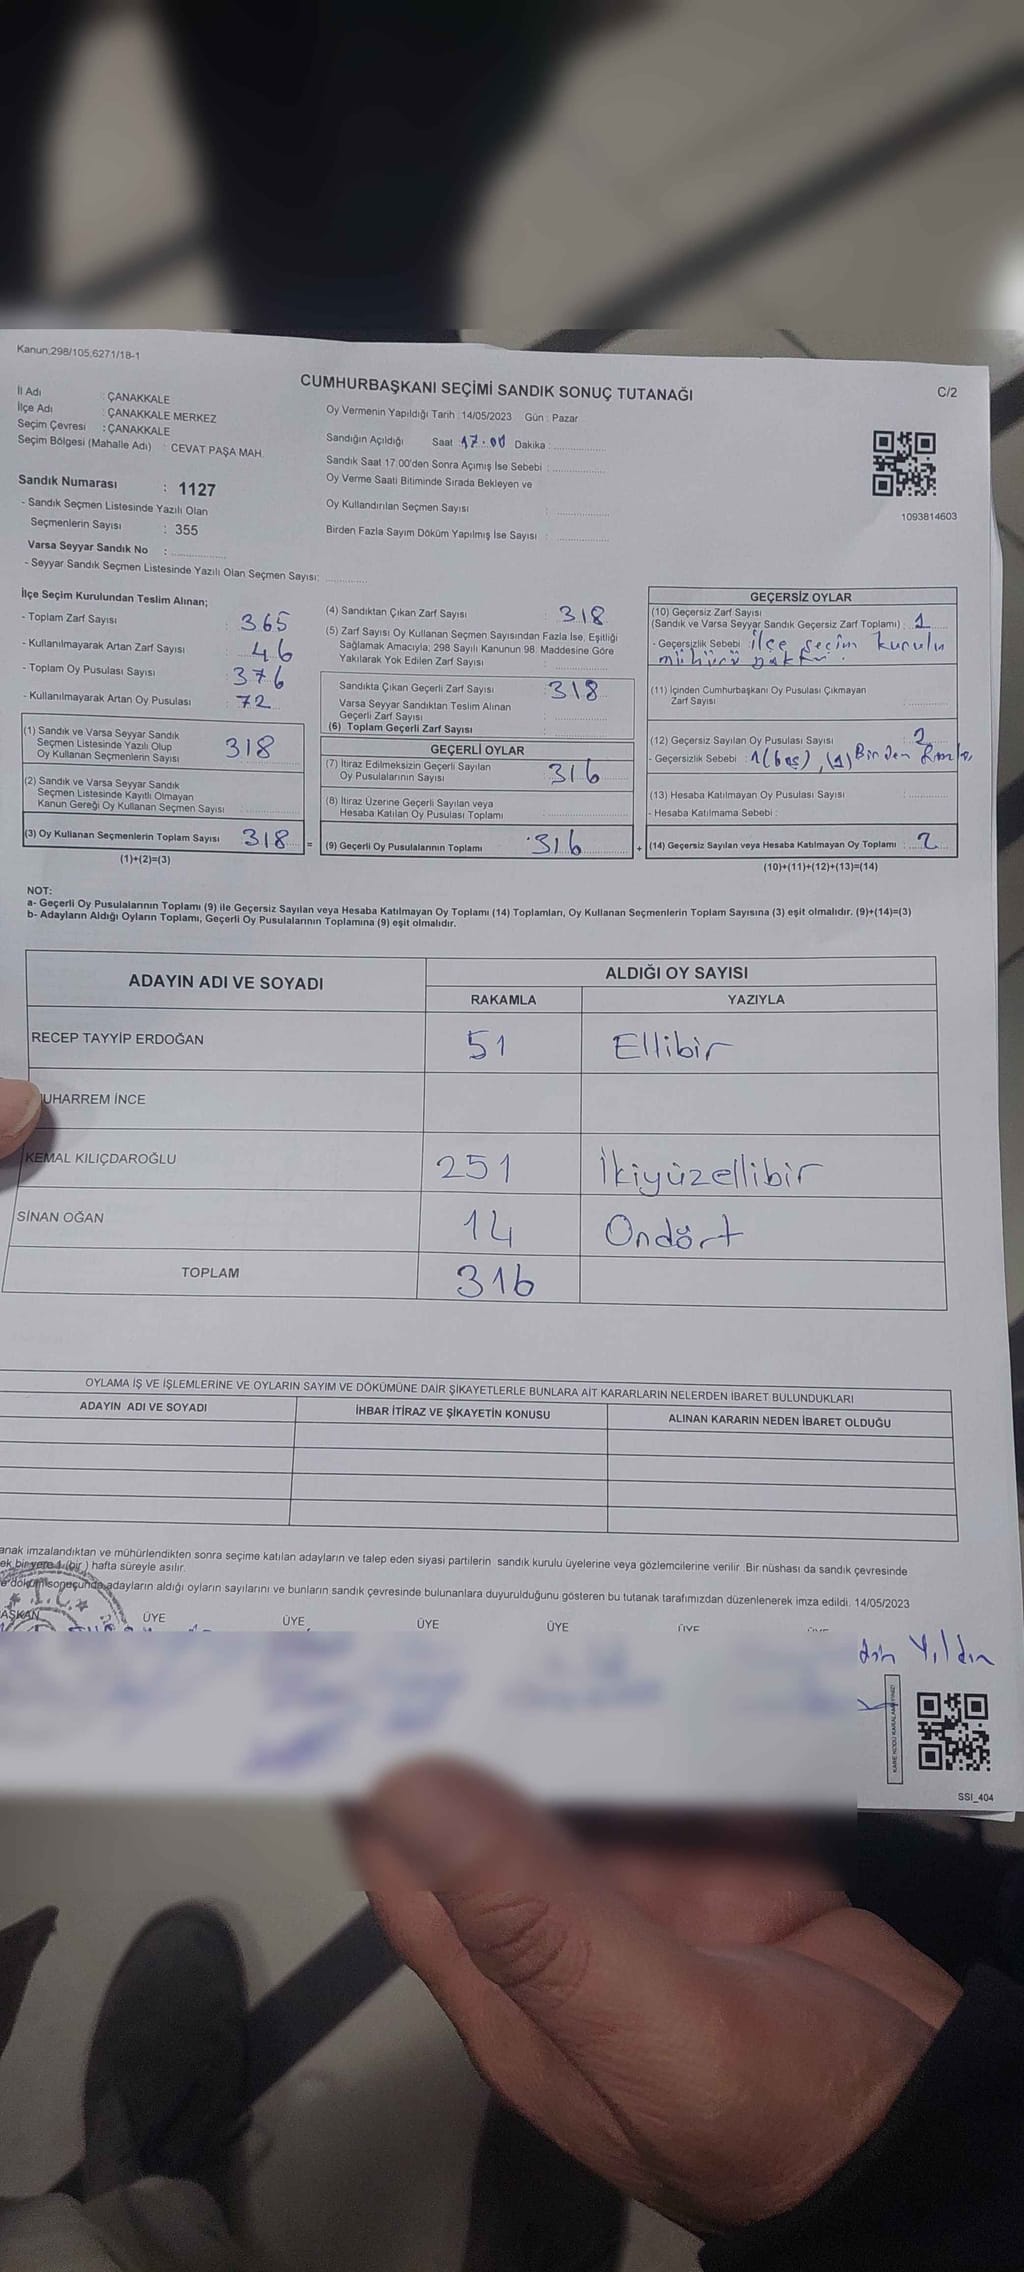 Kanun;298/105,6271/18-1
CUMHURBAŞKANI SEÇİMİ SANDIK SONUÇ TUTANAĞI
C/2
İl Adı : ÇANAKKALE
İlçe Adı : ÇANAKKALE MERKEZ
Seçim Çevresi : ÇANAKKALE
Seçim Bölgesi (Mahalle Adı) : CEVAT PAŞA MAH.
Sandık Numarası : 1127
- Sandık Seçmen Listesinde Yazılı Olan
Seçmenlerin Sayısı : 355
Varsa Seyyar Sandık No :
- Seyyar Sandık Seçmen Listesinde Yazılı Olan Seçmen Sayısı:
Oy Vermenin Yapıldığı Tarih : 14/05/2023 Gün : Pazar
Sandığın Açıldığı Saat 17.00 Dakika :
Sandık Saat 17.00'den Sonra Açımış İse Sebebi :
Oy Verme Saati Bitiminde Sırada Bekleyen ve
Oy Kullandırılan Seçmen Sayısı :
Birden Fazla Sayım Döküm Yapılmış İse Sayısı :
1093814603
İlçe Seçim Kurulundan Teslim Alınan;
- Toplam Zarf Sayısı : 365
- Kullanılmayarak Artan Zarf Sayısı : 46
- Toplam Oy Pusulası Sayısı : 376
- Kullanılmayarak Artan Oy Pusulası : 72
(1) Sandık ve Varsa Seyyar Sandık
Seçmen Listesinde Yazılı Olup
Oy Kullanan Seçmenlerin Sayısı 318
(2) Sandık ve Varsa Seyyar Sandık
Seçmen Listesinde Kayıtlı Olmayan
Kanun Gereği Oy Kullanan Seçmen Sayısı
(3) Oy Kullanan Seçmenlerin Toplam Sayısı 318
(1)+(2)=(3)
=
(4) Sandıktan Çıkan Zarf Sayısı : 318
(5) Zarf Sayısı Oy Kullanan Seçmen Sayısından Fazla İse, Eşitliği
Sağlamak Amacıyla; 298 Sayılı Kanunun 98. Maddesine Göre
Yakılarak Yok Edilen Zarf Sayısı :
Sandıkta Çıkan Geçerli Zarf Sayısı : 318
Varsa Seyyar Sandıktan Teslim Alınan
Geçerli Zarf Sayısı :
(6) Toplam Geçerli Zarf Sayısı :
GEÇERLİ OYLAR
(7) İtiraz Edilmeksizin Geçerli Sayılan
Oy Pusulalarının Sayısı : 316
(8) İtiraz Üzerine Geçerli Sayılan veya
Hesaba Katılan Oy Pusulası Toplamı :
(9) Geçerli Oy Pusulalarının Toplamı : 316
+
GEÇERSİZ OYLAR
(10) Geçersiz Zarf Sayısı
(Sandık ve Varsa Seyyar Sandık Geçersiz Zarf Toplamı) : 1
- Geçersizlik Sebebi : ilçe seçim kurulu
mühürü
(11) İçinden Cumhurbaşkanı Oy Pusulası Çıkmayan
Zarf Sayısı :
(12) Geçersiz Sayılan Oy Pusulası Sayısı : 2
- Geçersizlik Sebebi : 1(boş), (1) Birden
(13) Hesaba Katılmayan Oy Pusulası Sayısı :
- Hesaba Katılmama Sebebi :
(14) Geçersiz Sayılan veya Hesaba Katılmayan Oy Toplamı : 2
(10)+(11)+(12)+(13)=(14)
NOT:
a- Geçerli Oy Pusulalarının Toplamı (9) ile Geçersiz Sayılan veya Hesaba Katılmayan Oy Toplamı (14) Toplamları, Oy Kullanan Seçmenlerin Toplam Sayısına (3) eşit olmalıdır. (9)+(14)=(3)
b- Adayların Aldığı Oyların Toplamı, Geçerli Oy Pusulalarının Toplamına (9) eşit olmalıdır.
ADAYIN ADI VE SOYADI ALDIĞI OY SAYISI
RAKAMLA YAZIYLA
RECEP TAYYİP ERDOĞAN 51 Ellibir
UHARREM İNCE
KEMAL KILIÇDAROĞLU 251 İkiyüzellibir
SİNAN OĞAN 14 Ondört
TOPLAM 316
OYLAMA İŞ VE İŞLEMLERİNE VE OYLARIN SAYIM VE DÖKÜMÜNE DAİR ŞİKAYETLERLE BUNLARA AİT KARARLARIN NELERDEN İBARET BULUNDUKLARI
ADAYIN ADI VE SOYADI İHBAR İTİRAZ VE ŞİKAYETİN KONUSU ALINAN KARARIN NEDEN İBARET OLDUĞU
anak imzalandıktan ve mühürlendikten sonra seçime katılan adayların ve talep eden siyasi partilerin sandık kurulu üyelerine veya gözlemcilerine verilir. Bir nüshası da sandık çevresinde
ek bir yere 1 (bir) hafta süreyle asılır.
e döküm sonucunda adayların aldığı oyların sayılarını ve bunların sandık çevresinde bulunanlara duyurulduğunu gösteren bu tutanak tarafımızdan düzenlenerek imza edildi. 14/05/2023
T.C.
AŞKAN ÜYE ÜYE ÜYE ÜYE ÜYE
KARE KODU KARALAMAYINIZ!
SSI_404